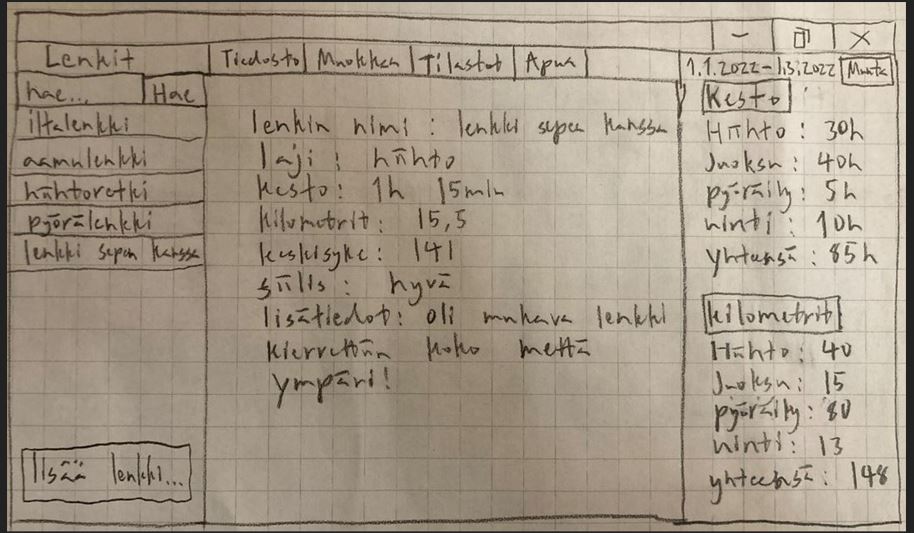 Lenkit
Tiedosto Muokkaa Tilastot Apua
1.1.2022-1.3.2022 Muuta
hae... Hae
iltalenkki
aamulenkki
hiihtoretki
pyörälenkki
lenkki sepen kanssa
lisää lenkki...
lenkin nimi : lenkki sepen kanssa
laji : hiihto
kesto : 1h 15min
kilometrit : 15,5
keskisyke : 141
säilis : hyvä
lisätiedot : oli mukava lenkki
kierrettiin koko mettä
ympäri!
Kesto
Hiihto : 30h
Juoksu : 40h
pyöräily : 5h
uinti : 10h
yhteensä : 85h
kilometrit
Hiihto : 40
Juoksu : 15
pyöräily : 80
uinti : 13
yhteensä : 148